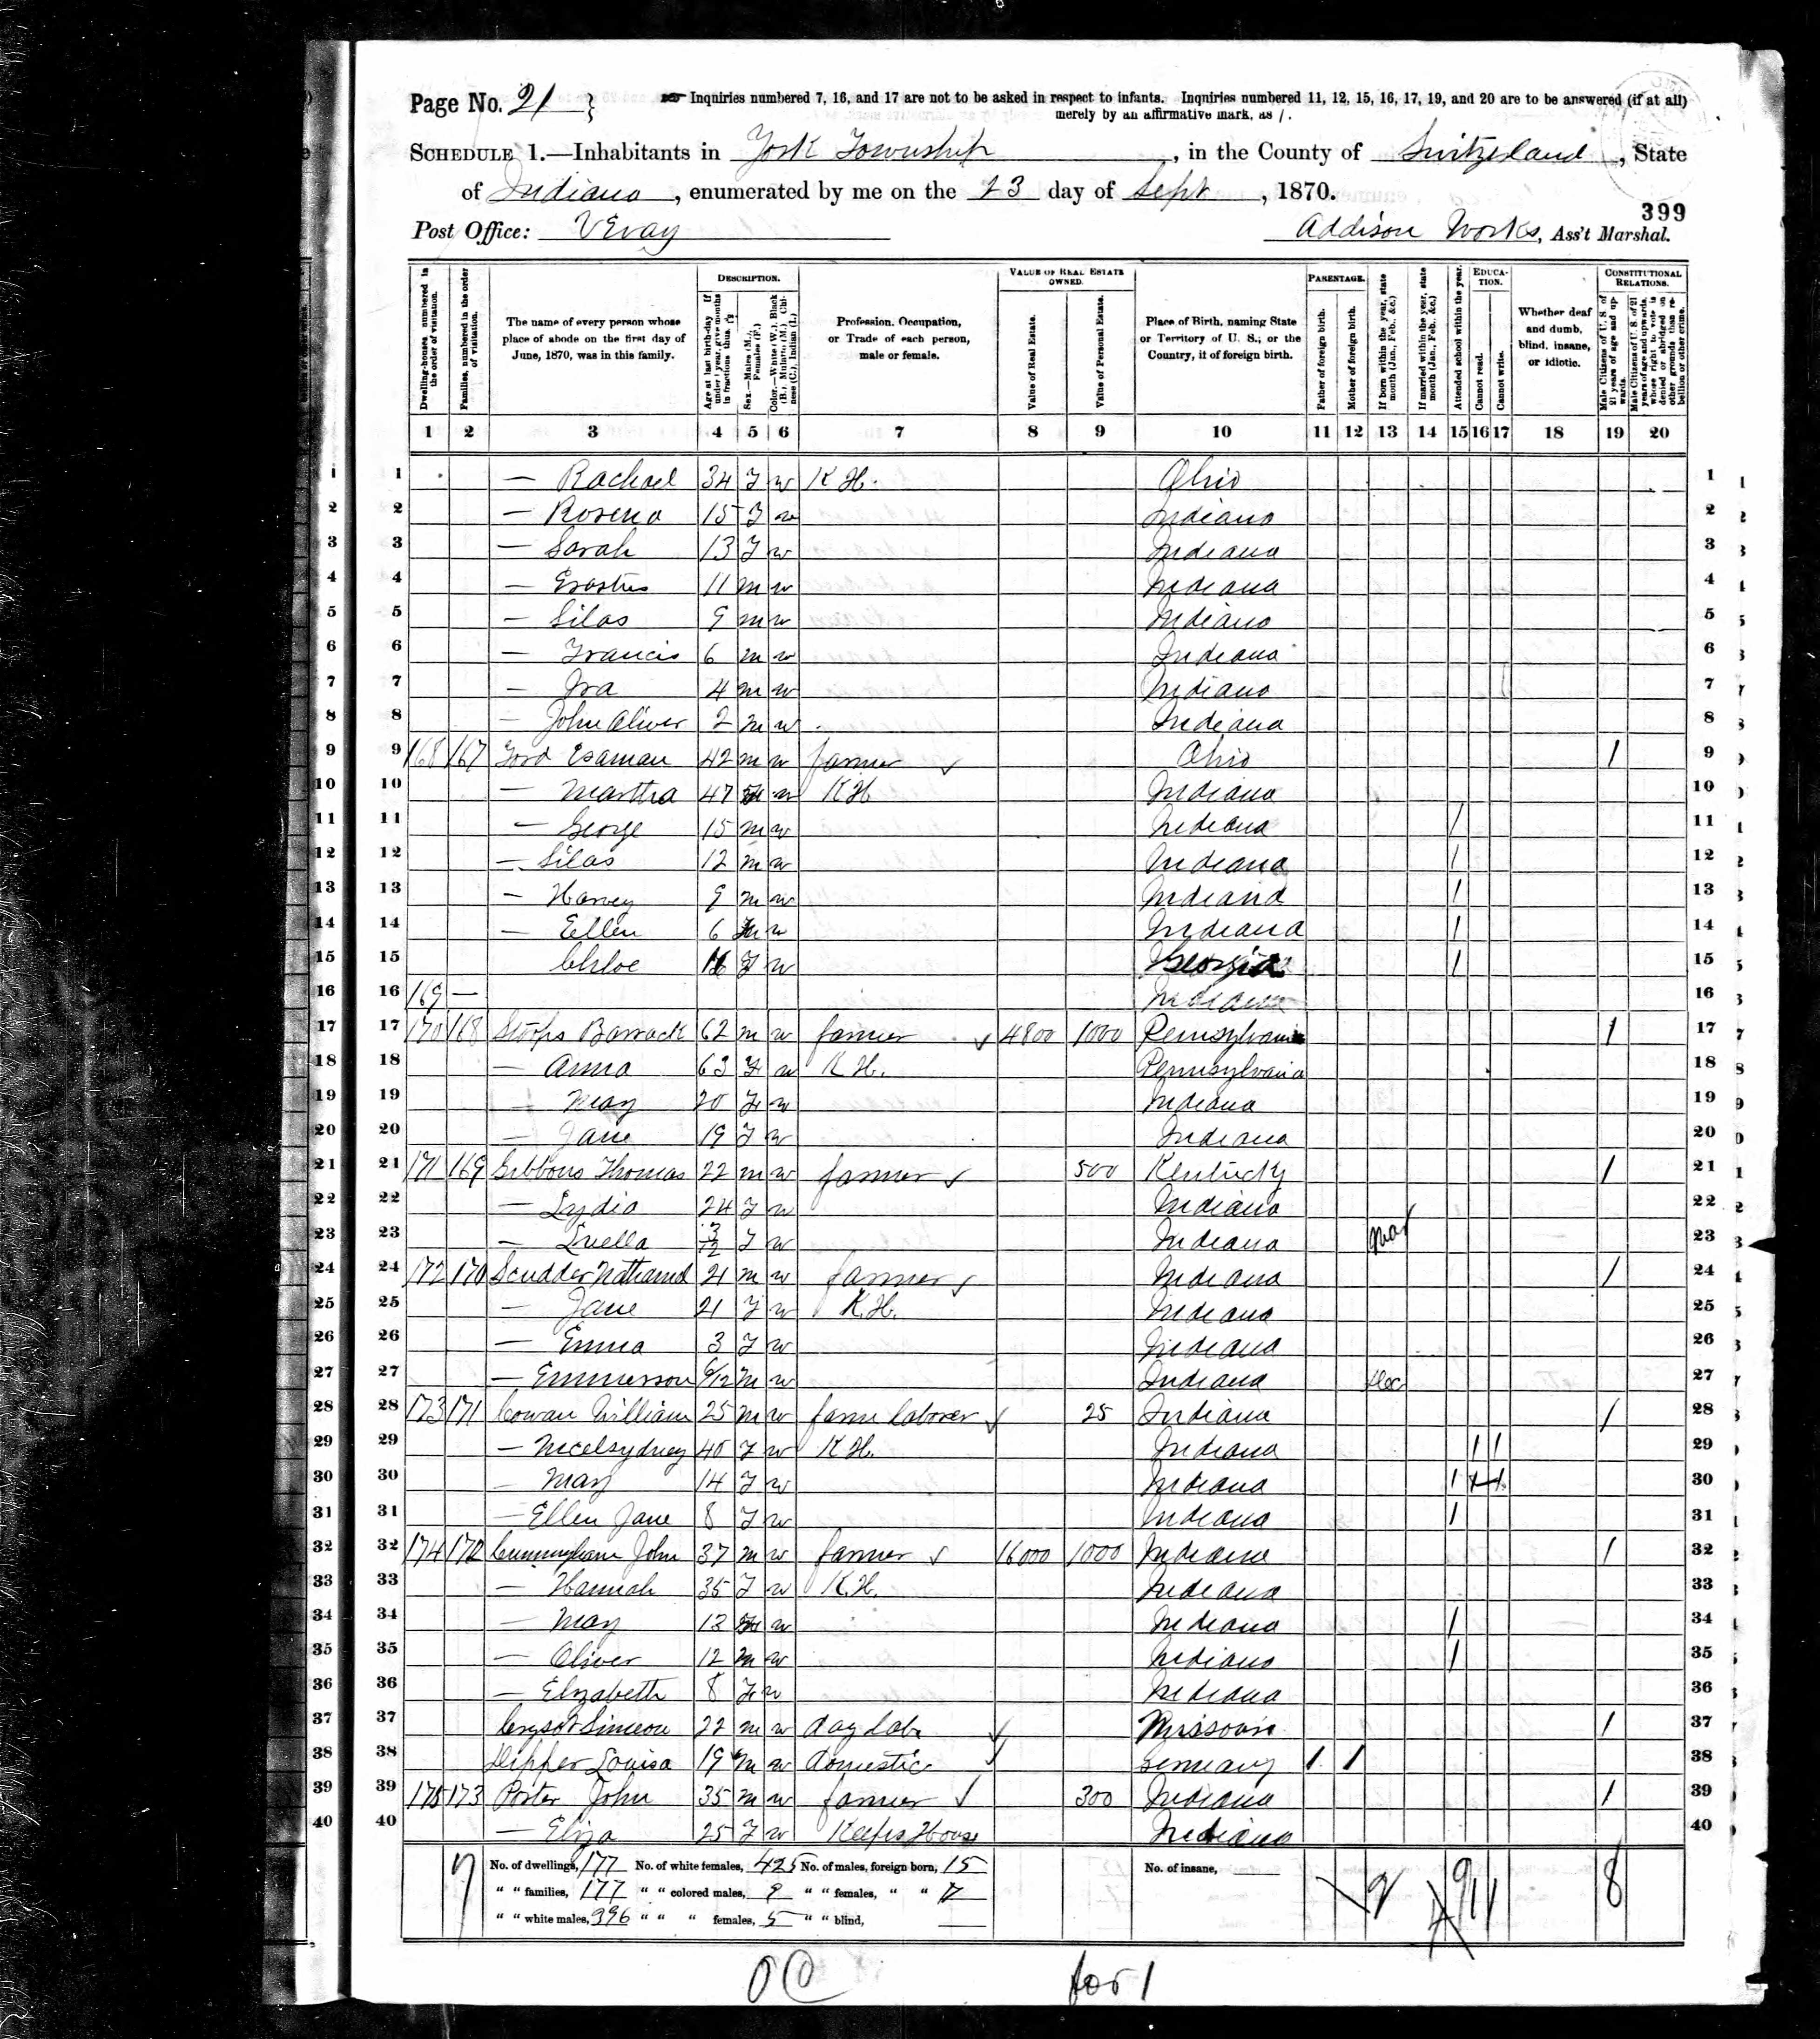 Page No. 21 } Inquiries numbered 7, 16, and 17 are not to be asked in respect to infants. Inquiries numbered 11, 12, 15, 16, 17, 19, and 20 are to be answered (if at all)
merely by an affirmative mark, as /.
SCHEDULE 1.—Inhabitants in York Township, in the County of Switzerland, State
of Indiana, enumerated by me on the 23 day of Sept, 1870.
399
Post Office: Vevay Addison Works, Ass't Marshal.
Dwelling-houses, numbered in the order of visitation.
Families, numbered in the order of visitation.
The name of every person whose place of abode on the first day of June, 1870, was in this family.
DESCRIPTION.
Age at last birth-day. If under 1 year, give months in fractions, thus, 3/12
Sex.—Males (M.), Females (F.)
Color.—White (W.), Black (B.), Mulatto (M.), Chinese (C.), Indian (I.)
Profession, Occupation, or Trade of each person, male or female.
VALUE OF REAL ESTATE OWNED.
Value of Real Estate.
Value of Personal Estate.
Place of Birth, naming State or Territory of U. S.; or the Country, if of foreign birth.
PARENTAGE.
Father of foreign birth.
Mother of foreign birth.
If born within the year, state month (Jan., Feb., &c.)
If married within the year, state month (Jan., Feb., &c.)
Attended school within the year.
EDUCATION.
Cannot read.
Cannot write.
Whether deaf and dumb, blind, insane, or idiotic.
CONSTITUTIONAL RELATIONS.
Male Citizens of U. S. of 21 years of age and upwards.
Male Citizens of U. S. of 21 years of age and upwards, whose right to vote is denied or abridged on other grounds than rebellion or other crime.
1 2 3 4 5 6 7 8 9 10 11 12 13 14 15 16 17 18 19 20
1 — Rachael 34 F w K H. Ohio 1
2 — Rosena 15 F w Indiana 2
3 — Sarah 13 F w Indiana 3
4 — Erastus 11 m w Indiana 4
5 — Silas 9 m w Indiana 5
6 — Francis 6 m w Indiana 6
7 — Ira 4 m w Indiana 7
8 — John Oliver 2 m w Indiana 8
9 168 167 Ford Esaman 42 m w farmer Ohio / 9
10 — Martha 47 F w K H Indiana 10
11 — George 15 m w Indiana / 11
12 — Silas 12 m w Indiana / 12
13 — Harvey 9 m w Indiana / 13
14 — Eellen 6 w Indiana / 14
15 Chloe F w Georgia / 15
16 169 — Indiana 16
17 170 168 Stops Barrack 62 m w farmer 4800 1000 Pennsylvania / 17
18 — Anna 63 F w K H. Pennsylvania 18
19 — May 20 F w Indiana 19
20 — Jane 19 F w Indiana 20
21 171 169 Gibbons Thomas 22 m w farmer 500 Kentucky / 21
22 — Lydia 24 F w Indiana 22
23 — Luella 3/12 F w Indiana Mar 23
24 172 170 Scudder Nathaniel 21 m w farmer Indiana / 24
25 — Jane 21 F w K.H. Indiana 25
26 — Emma 3 F w Indiana 26
27 — Emmerson 6/12 m w Indiana Dec 27
28 173 171 Cowan William 25 m w farm laborer 25 Indiana / 28
29 — 40 F w K H. Indiana / / 29
30 — May 14 F w Indiana / 30
31 — Ellen Jane 8 F w Indiana / 31
32 174 172 Cunningham John 37 m w farmer 16000 1000 Indiana / 32
33 — Hannah 35 F w K.H. Indiana 33
34 — May 13 F w Indiana / 34
35 — Oliver 12 m w Indiana / 35
36 — Elizabeth 8 F w Indiana 36
37 Simeon 22 m w day lab. Missouri / 37
38 Louisa 19 m w domestic Germany / / 38
39 175 173 Porter John 35 m w farmer 300 Indiana / 39
40 — Eliza 25 F w Keeps House Indiana 40
No. of dwellings, 177 No. of white females, 425 No. of males, foreign born, 15 No. of insane,
" " families, 177 " " colored males, 9 " " females, " " 12
" " white males, 396 " " " females, 5 " " blind,
7 2 9 1 1 8
for 1